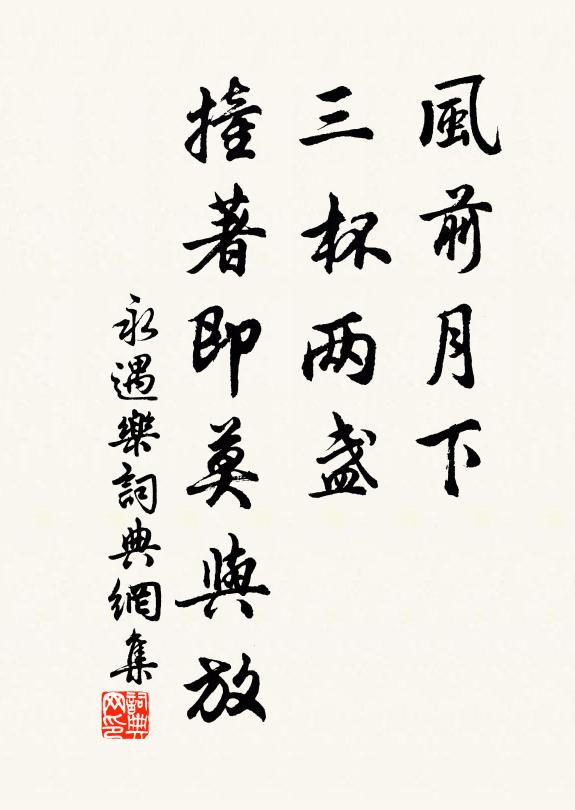 風前月下
三杯两盞
撞著即莫與放
永遇樂詞典網集
詞典网印